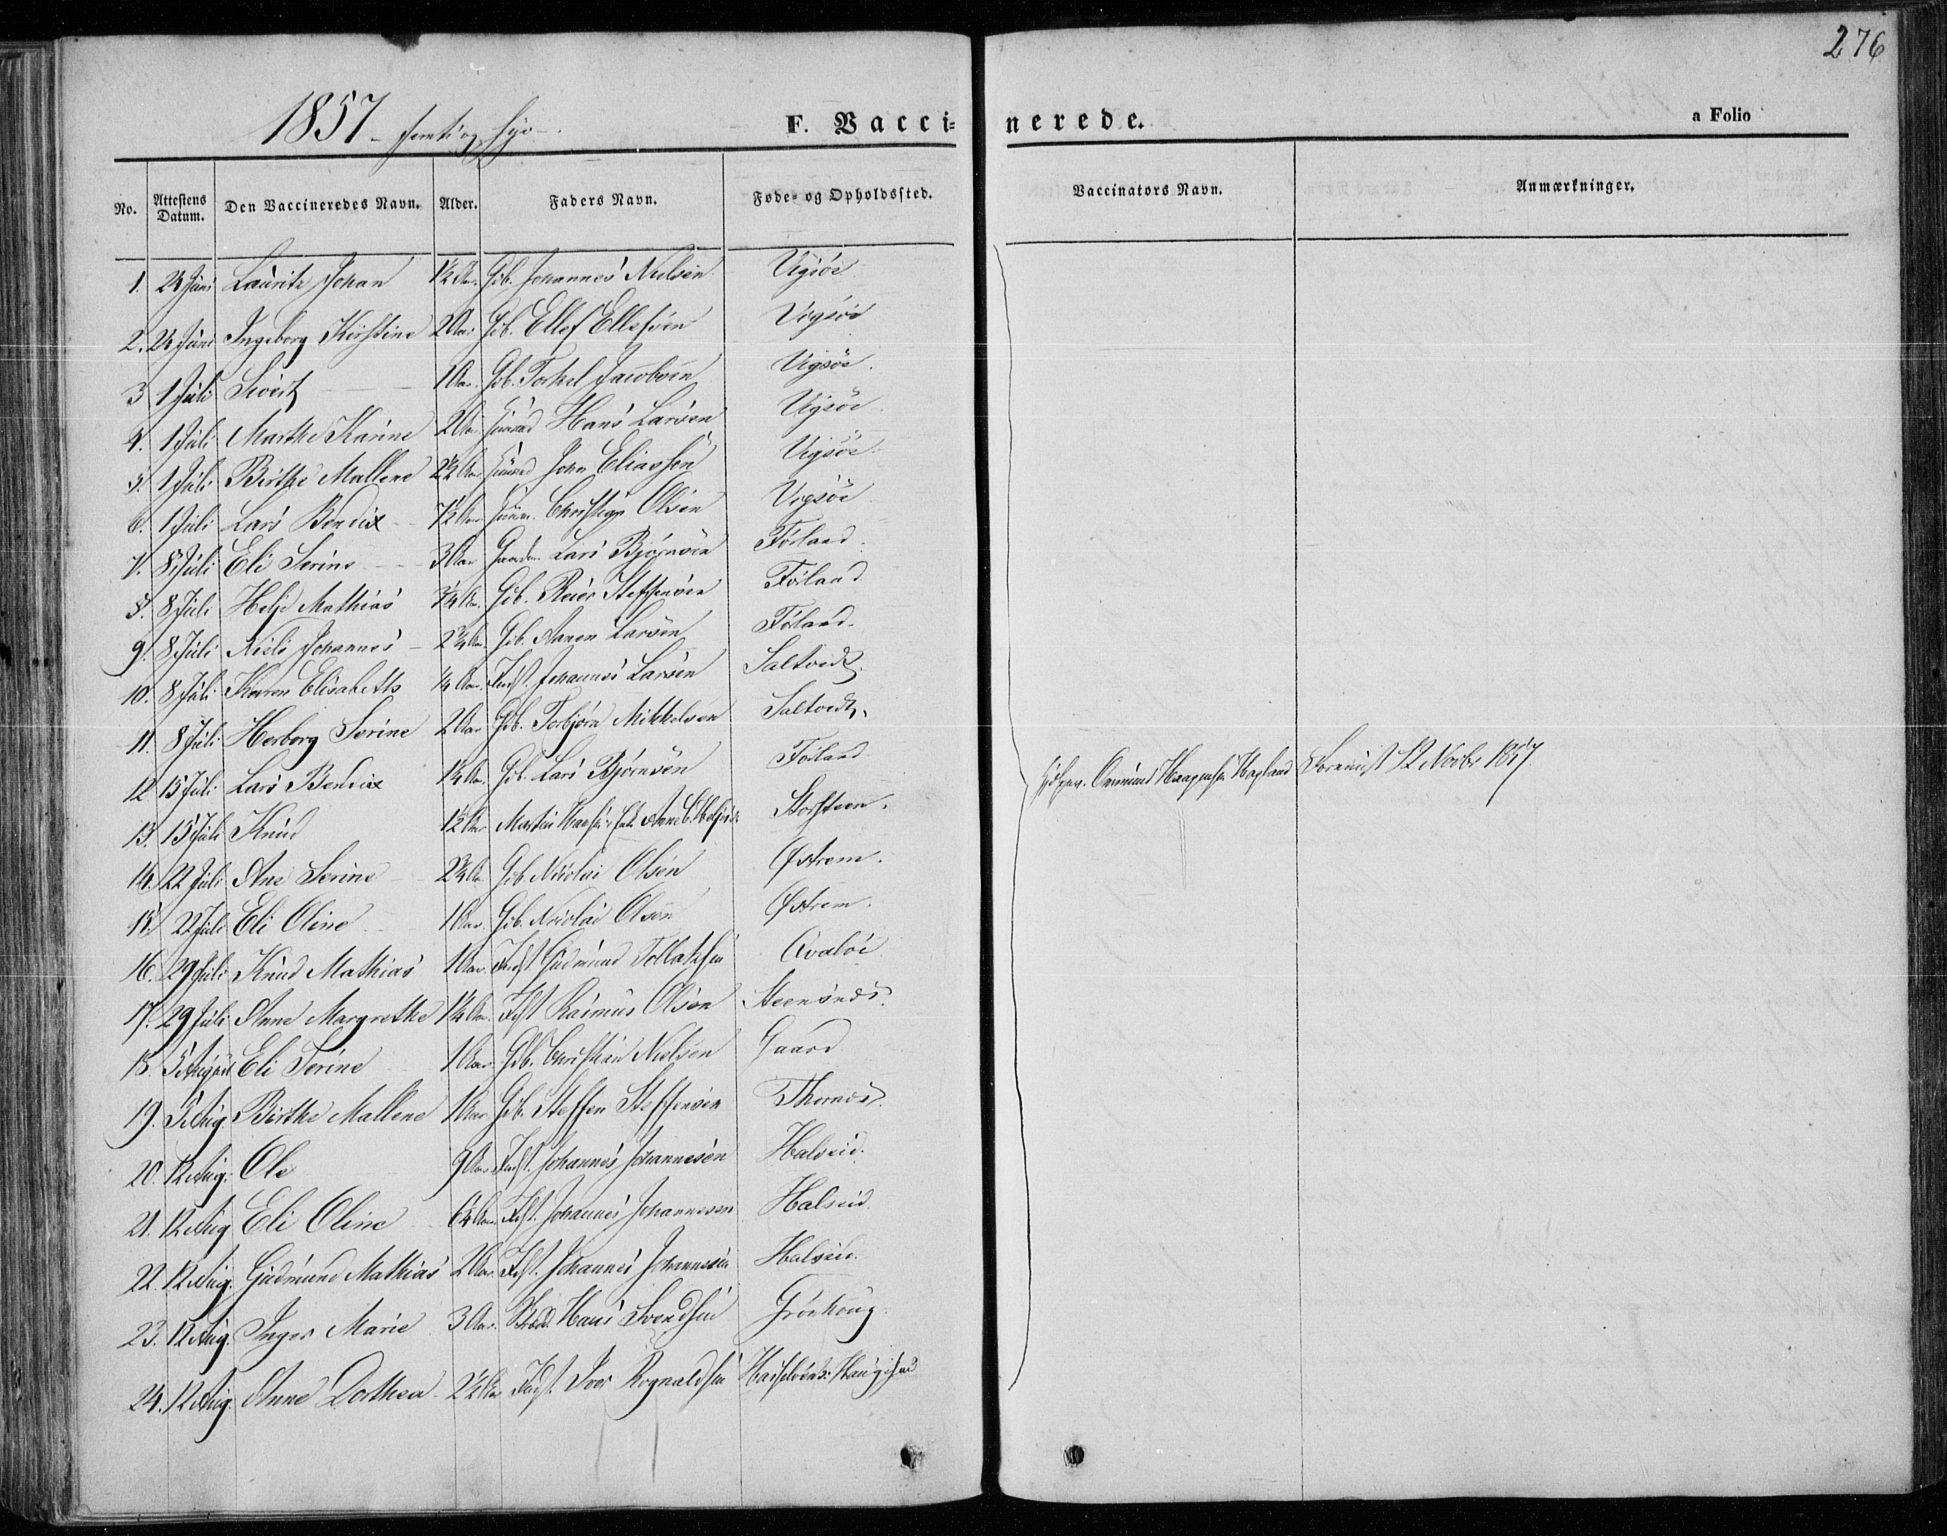 276
1857 – femti og syv –
F. Vaccinerede.
a Folio
No. Attestens Datum. Den Vaccineredes Navn. Alder. Faders Navn. Føde- og Opholdssted. Vaccinators Navn. Anmærkninger.
1. 24 Juni Lauritz Johan 1½ Aar. Gb. Johannes Nielsen Vigsøe
2. 24 Juni Ingeborg Kirstine 2 Aar Gb. Ellef Ellefsen Vigsøe
3 1 Juli Sivert 1 Aar. Gb. Torkel Jacobsen Vigsøe.
4. 1 Juli Marthe Karine 2 Aar Huusmd Hans Larsen Vigsøe.
5. 1 Juli Birthe Mallene 2½ Aar Huusmd John Eliassen Vigsøe.
6. 1 Juli Lars Bendix 7½ Aar Huusm. Christian Olsen Vigsøe
7. 8 Juli Eli Serine 3 Aar Lars Bjørnsen Førland.
8. 8 Juli Helje Mathias ¾ Aar. Gb. Reier Steffensen Førland
9. 8 Juli Niels Johannes 2¾ Aar Gb. Aanen Larsen Førland.
10. 8 Juli Karen Elisabeth ¼ Aar. Johannes Larsen Saltvedt.
11. 8 Juli Herborg Serine 2 Aar Gb. Tobjørn Mikkelsen Saltvedt.
12 15 Juli Lars Bendix 1¼ Aar. Gb. Lars Bjørnsen Førland
13. 15 Juli Knud 1½ Aar Storsteen.
14. 22 Juli Ane Serine 2¾ Aar Gb. Nicolai Olsen Østrem.
15. 22 Juli Eli Oline 1 Aar. Gb. Nicolai Olsen Østrem.
16. 29 Juli Knud Mathias 1 Aar. Gudmund Tollaksen Qvaløe
17. 29 Juli Anne Margrethe 1¼ Aar. Rasmus Olsen Steensnes.
18. 5 August Eli Serine 1 Aar Gb. Christian Nielsen Gaard
19. 5 Aug Birthe Mallene 1 Aar Gb. Steffen Steffensen Thornes.
20. 12 Aug. Ole 9 Aar Johannes Johannesen Halseid.
21. 12 Aug Eli Oline 6¼ Aar. Johannes Johannesen Halseid.
22. 12 Aug. Gudmund Mathias 2 Aar. Johannes Johannesen Halseid.
23. 12 Aug. Inger Marie 3 Aar. Hans Svendsen Grönhoug.
24. 12 Aug. Anne Dorthea 2½ Aar Iver Rognaldsen
Ommund Haagensen Hagland 12 Novbr 1857.